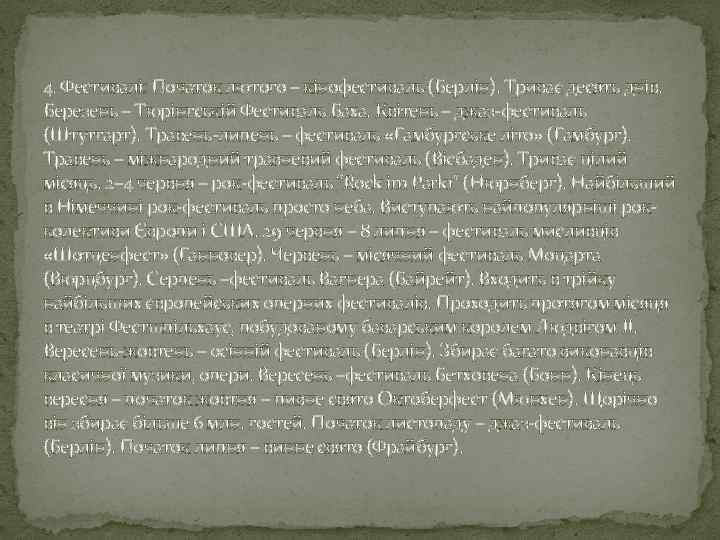 4. Фестивалі: Початок лютого – кінофестиваль (Берлін). Триває десять днів.
Березень – Тюрінгський Фестиваль Баха. Квітень – джаз-фестиваль
(Штутгарт). Травень-липень – фестиваль «Гамбургське літо» (Гамбург).
Травень – міжнародний травневий фестиваль (Вісбаден). Триває цілий
місяць. 2–4 червня – рок-фестиваль "Rock im Park1" (Нюрнберг). Найбільший
в Німеччині рок-фестиваль просто неба. Виступають найпопулярніші рок-
колективи Європи і США. 29 червня – 8 липня – фестиваль мисливців
«Шютценфест» (Ганновер). Червень – місячний фестиваль Моцарта
(Вюрцбург). Серпень –фестиваль Вагнера (Байрейт). Входить в трійку
найбільших європейських оперних фестивалів. Проходить протягом місяця
в театрі Фестшпільхаус, побудованому баварським королем Людвігом II.
Вересень-жовтень – осінній фестиваль (Берлін). Збирає багато виконавців
класичної музики, опери. Вересень –фестиваль Бетховена (Бонн). Кінець
вересня – початок жовтня – пивне свято Октоберфест (Мюнхен). Щорічно
він збирає більше 6 млн. гостей. Початок листопаду – джаз-фестиваль
(Берлін). Початок липня – винне свято (Фрайбург).